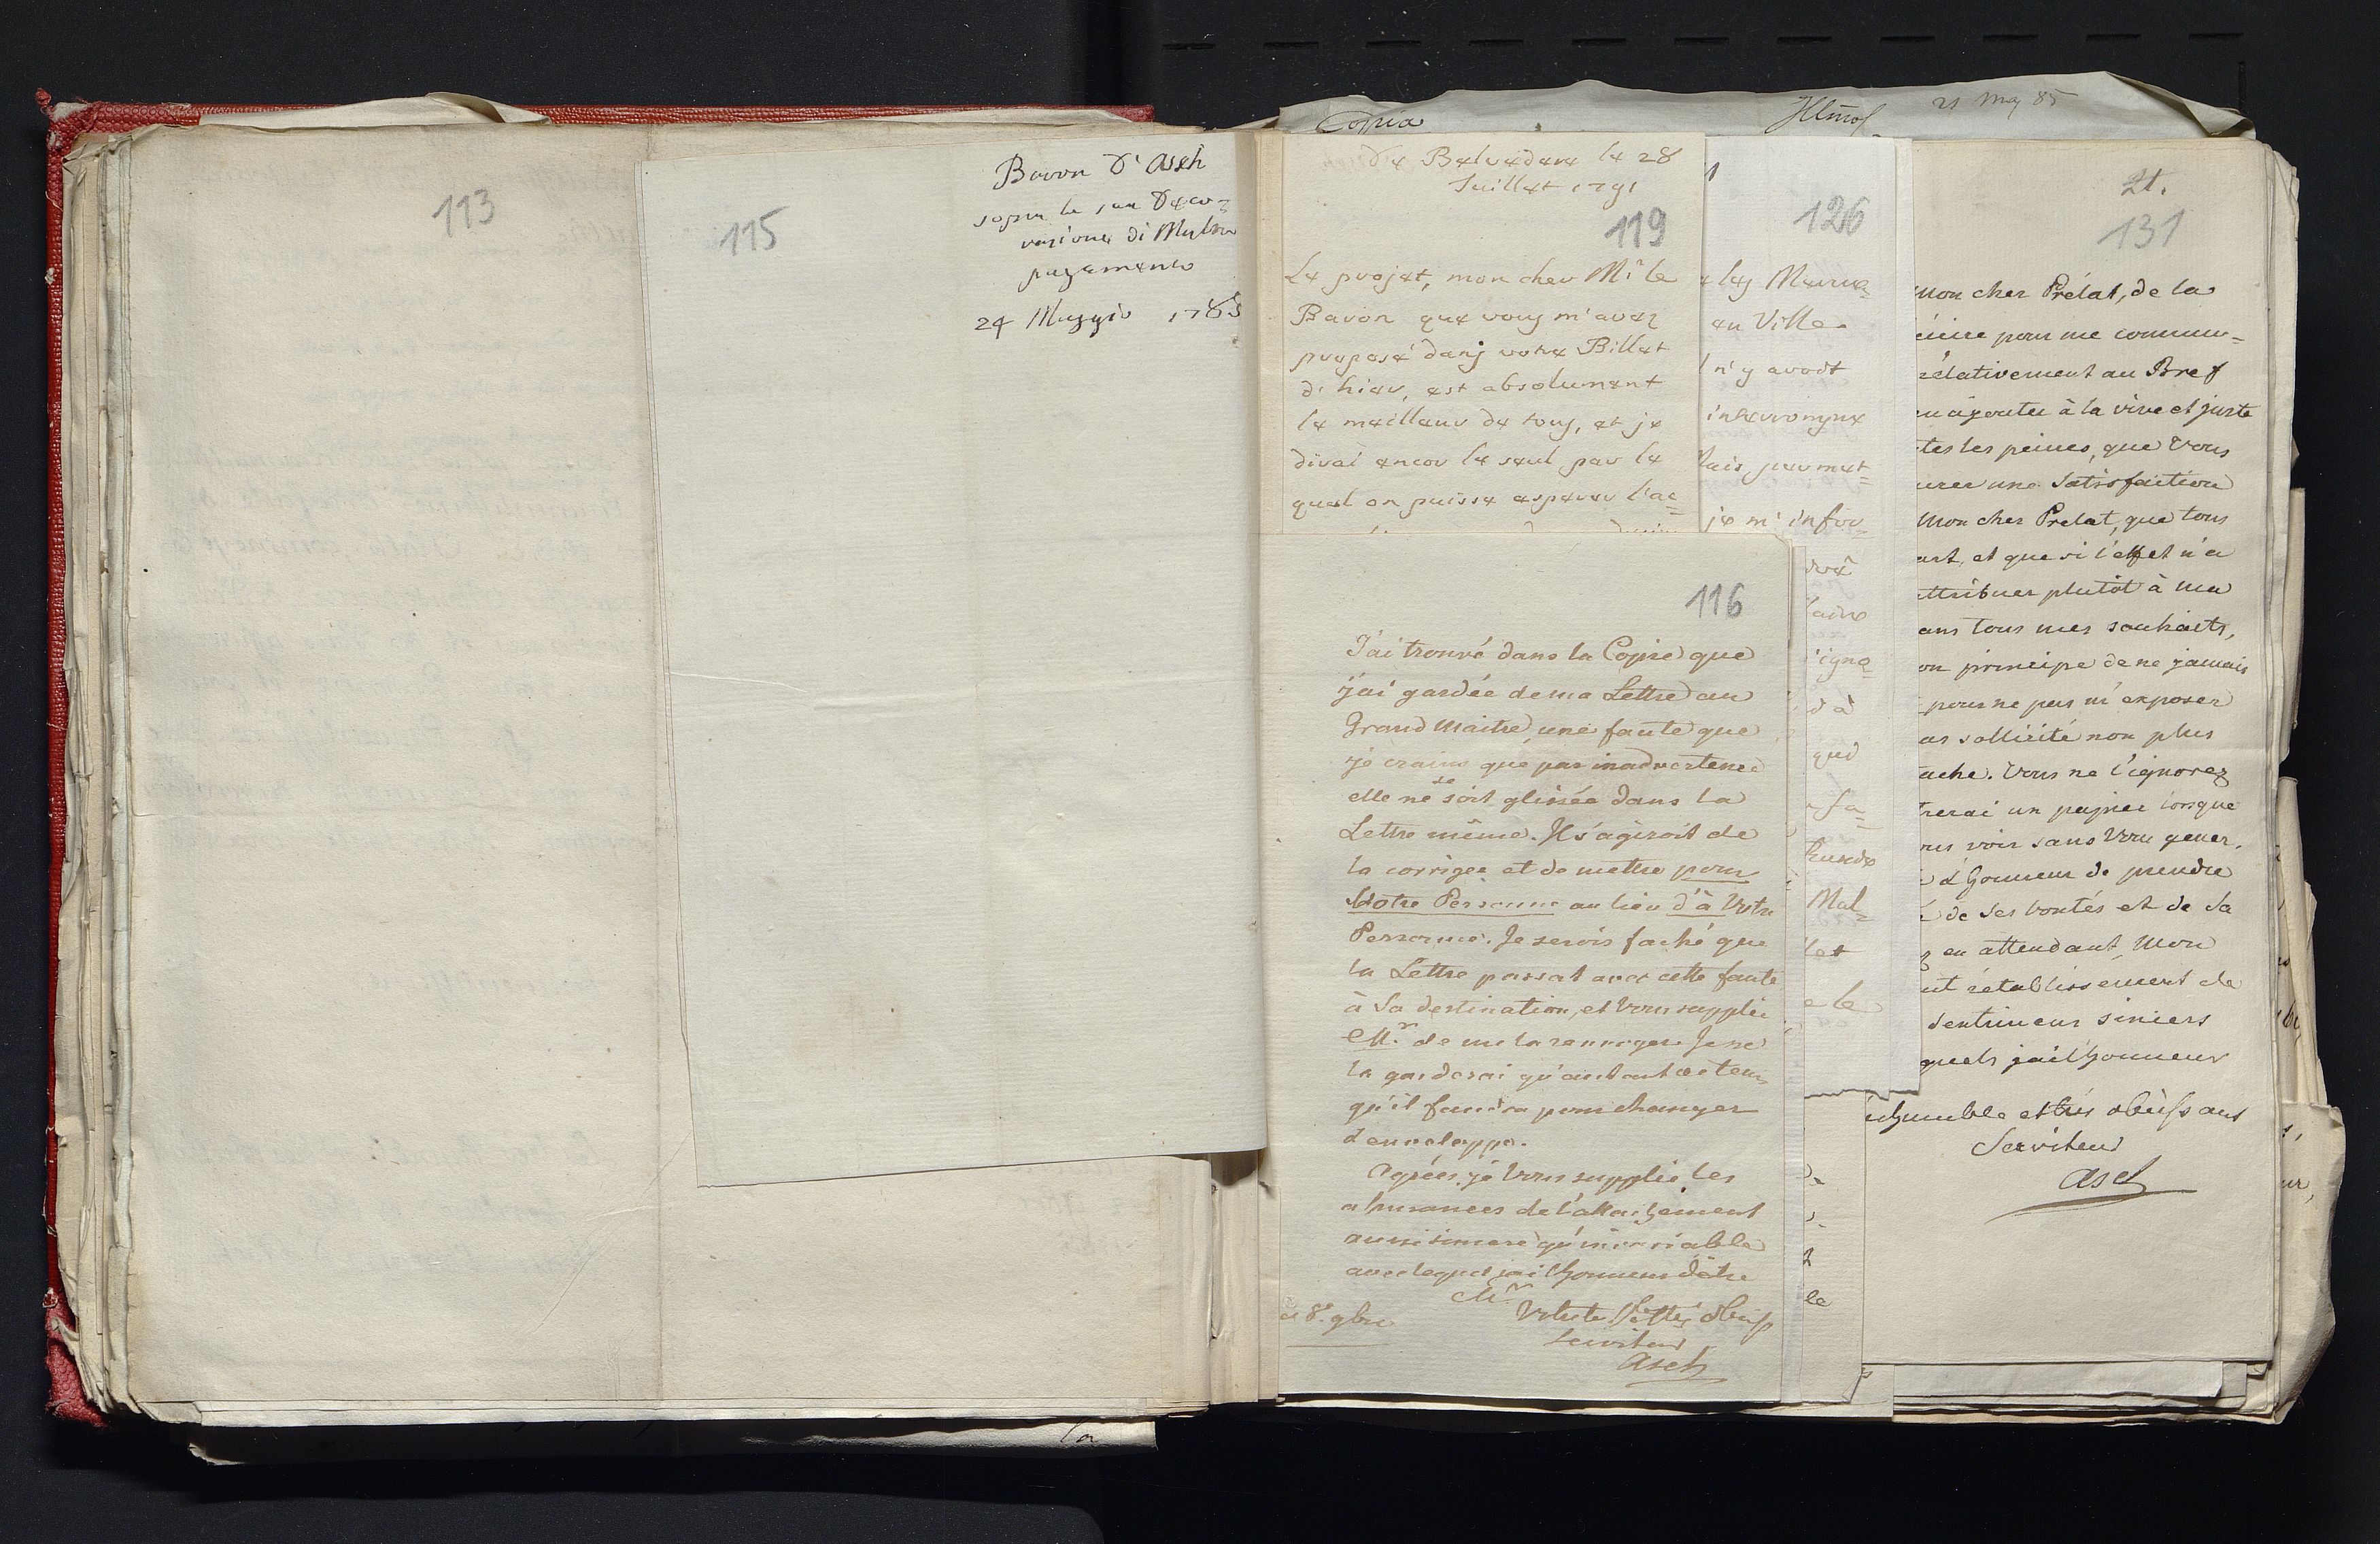 113
115
Baron D'Asch
sopra la sua Deco-
razione di Malta
pagamento
24 Maggio 1785
Copia
Illmo
21 May 85
De Belvedere le 28
Juillet 1791
119
Le projet, mon cher Mr le
Baron que vous m'avez
proposé dans votre Billet
d'hier, est absolument
le meilleur de tous, et je
dirai encor le seul par le
quel on puisse esperer l'ac=
126
en Ville.
n'y avoit
interrompue
je m'infor=
à
que
Mal=
let
e le
le
21.
131
Mon cher Prélat, de la
pour me commu=
rélativement au Bref
ajouter à la vive et juste
tes les peines, que Vous
une Satisfaction
Mon cher Prelat, que tous
art, et que si l'effet n'a
attribuer plutôt à ma
ans tous mes souhaits,
on principe de ne jamais
pour ne pas m'exposer
as sollicité non plus
ache. Vous ne l'ignorez
un papier lorsque
us voir sans Vous gener.
l'honneur de prendre
de Ses bontés et de Sa
en attendant, Mon
rétablissement de
sentimens sinceres
quels j'ai l'honneur
humble et très obeissant
Serviteur
Asch
116
J'ai trouvé dans la Copie que
j'ai gardée de ma Lettre au
Grand Maitre, une faute que
je crains que par inadvertence
elle ne se soit glissée dans la
Lettre même. Il s'agiroit de
la corriger et de mettre pour
Votre Personne au lieu d'à Votre
Personne. Je serois faché que
la Lettre passat avec cette faute
à Sa destination, et Vous supplie
Mr. de me la renvoyer. Je ne
la garderai qu'autant de tems
qu'il faudra pour changer
d'enveloppe.
Agrées, je Vous supplie, les
assurances de l'attachement
aussi sincere qu'invariable
avec lequel j'ai l'honneur d'être
Mr
ce 8e. 9bre
Serviteur
Asch
la